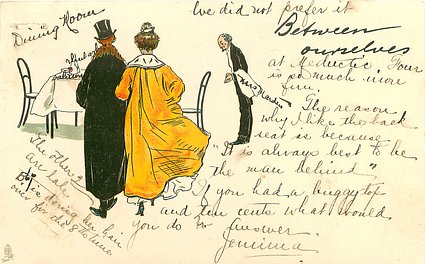 Dining Room
Ive did not prefer it
Between
ourselves
at Meductic. Four
is so much more
fun.
The reason
why I like the back
seat is because
"It is always best to be
the man behind"
If you had a buggy top
and ten cents what would
you do
Answer
Jemima
The other
are hal
B is doing her hair
over for the 8th time